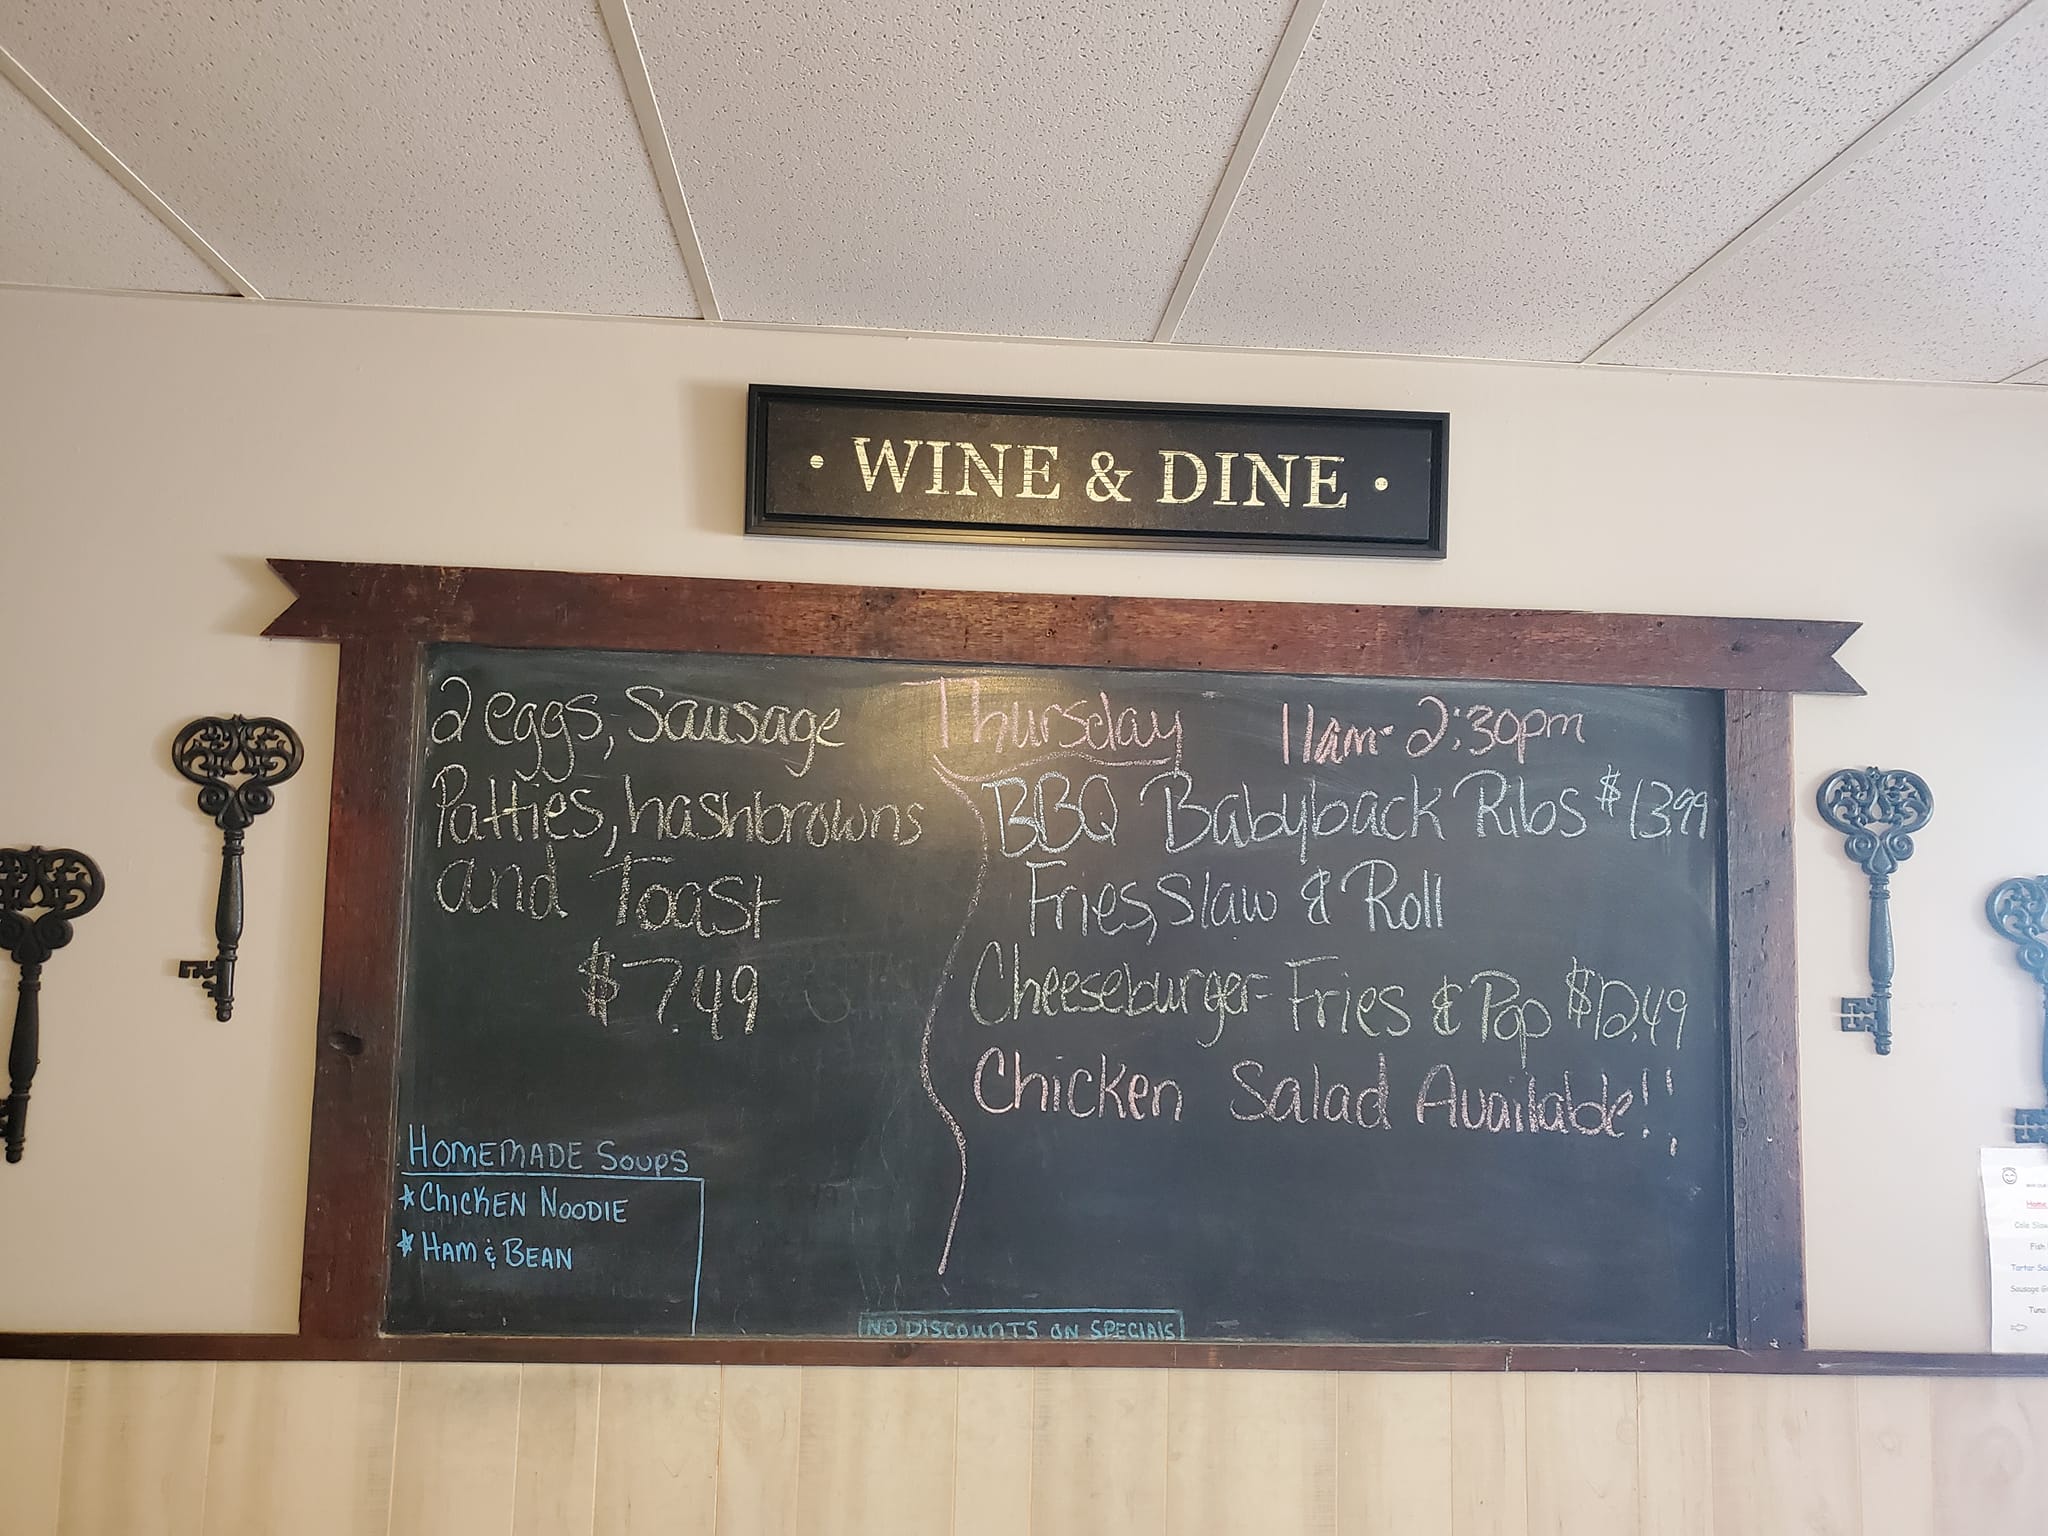 · WINE & DINE ·
2 eggs, Sausage
Patties, hashbrowns
and Toast
$7.49
Thursday 11am-2:30pm
BBQ Babyback Ribs $13.99
Fries, Slaw & Roll
Cheeseburger-Fries & Pop $12.49
Chicken Salad Available!!
HOMEMADE Soups
*CHICKEN NOODLE
*HAM & BEAN
NO DISCOUNTS ON SPECIALS
Home
Cole Slaw
Fish
Tartar
Sausage
Tuna